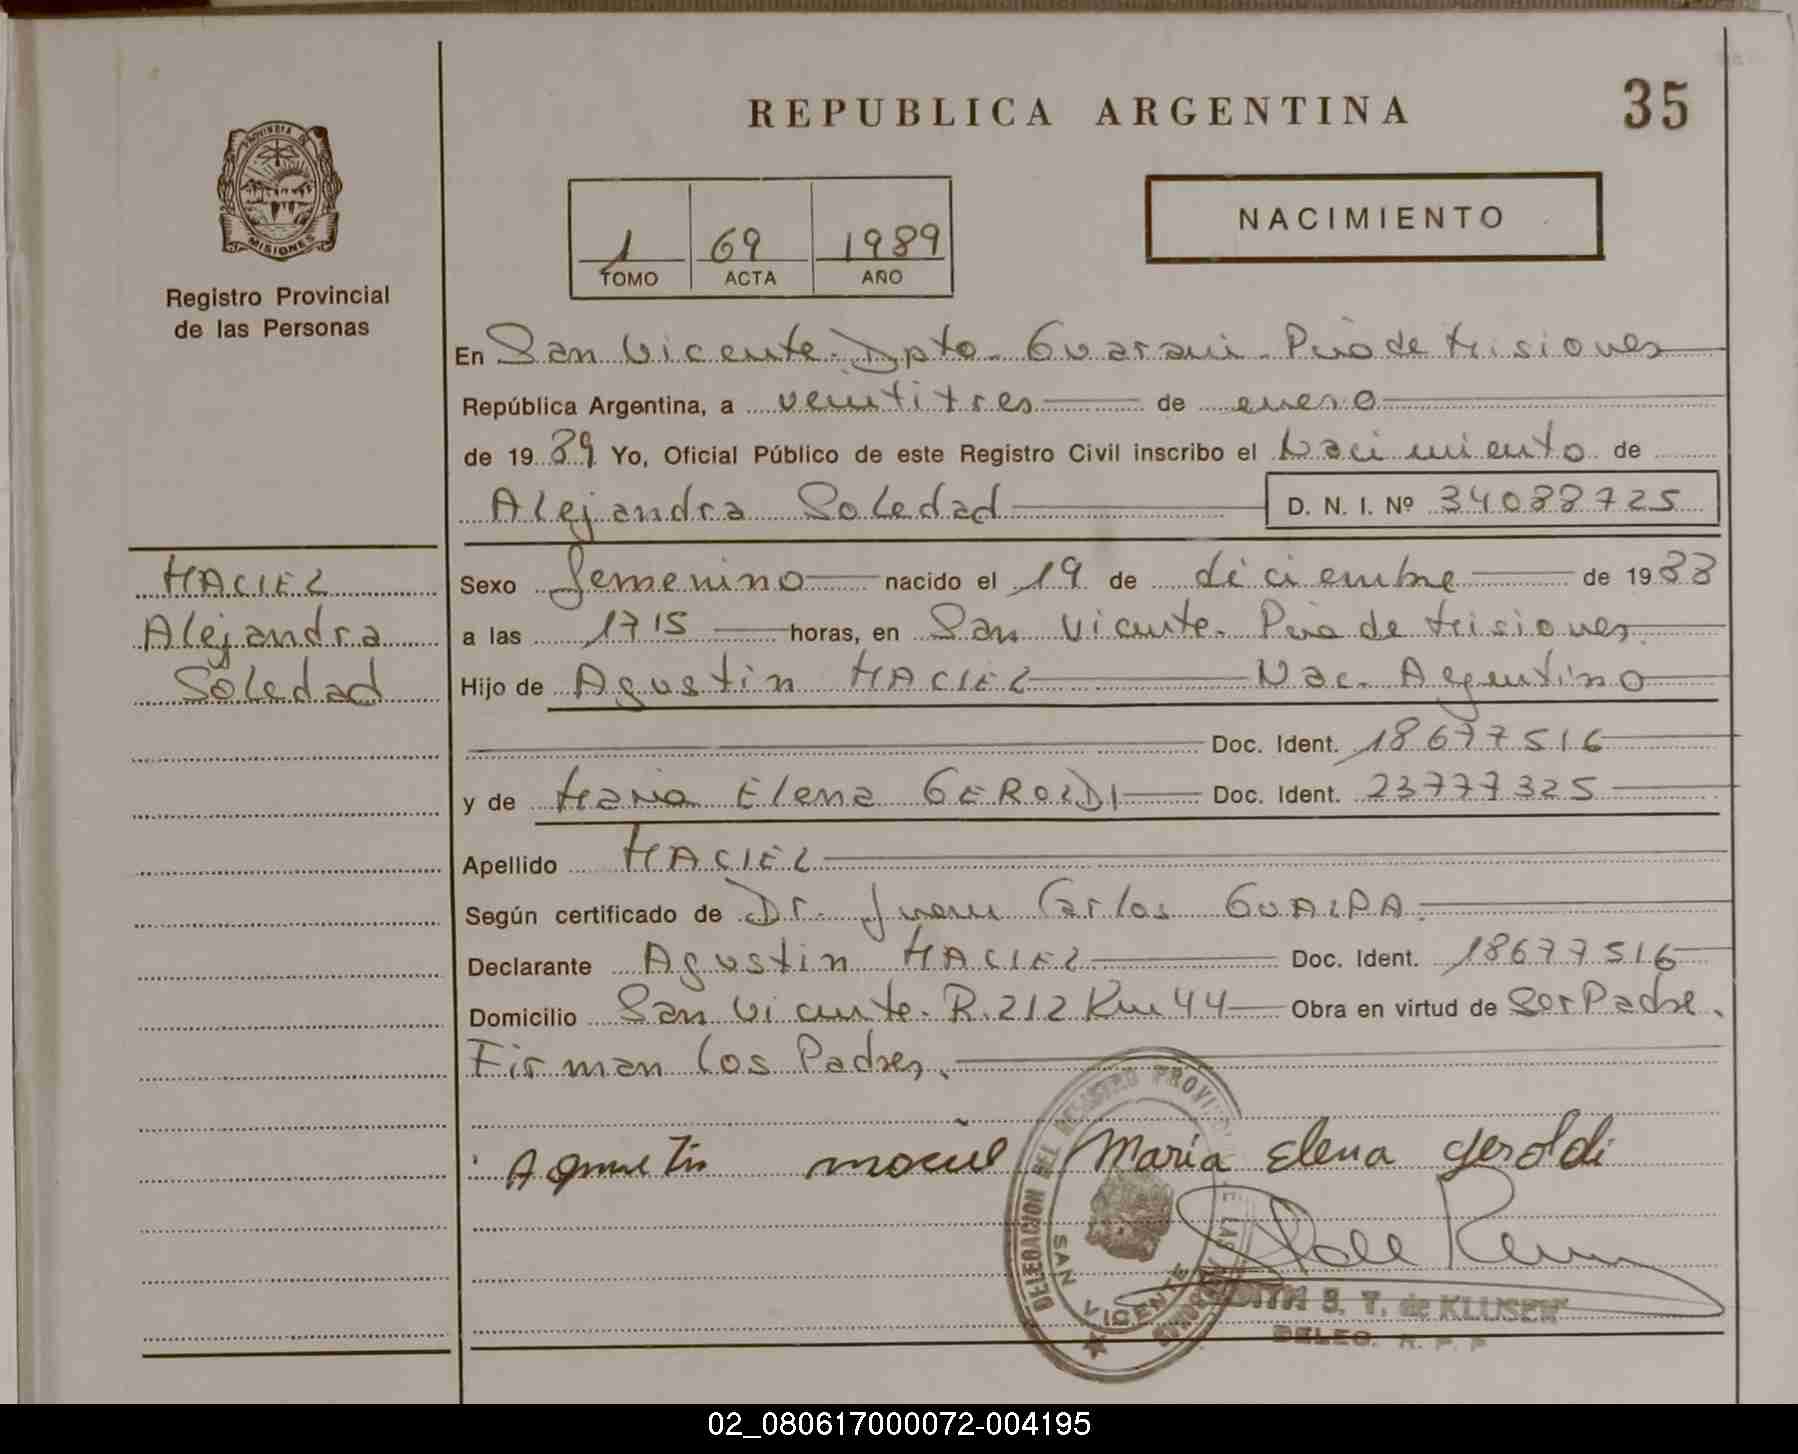 REPUBLICA ARGENTINA
35
PROVINCIA DE
MISIONES
Registro Provincial
de las Personas
1 69 1989
TOMO ACTA AÑO
NACIMIENTO
En San Vicente. Dpto. Guarani. Pcia de Misiones
República Argentina, a veintitres de enero
de 1989 Yo, Oficial Público de este Registro Civil inscribo el Nacimiento de
Alejandra Soledad D. N. I. Nº 34088725
MACIEL
Alejandra
Soledad
Sexo femenino nacido el 19 de diciembre de 1988
a las 1715 horas, en San Vicente. Pcia de Misiones.
Hijo de Agustin MACIEL Nac. Argentino
Doc. Ident. 18677516
y de Maria Elena GEROLDI Doc. Ident. 23777325
Apellido MACIEL
Según certificado de Dr. Juan Carlos GUALPA.
Declarante Agustin MACIEL Doc. Ident. 18677516
Domicilio San Vicente. R. 212 Km 44 Obra en virtud de Ser Padre.
Firman los Padres.
Agustin maciel María Elena geroldi
DELEGACION DEL REGISTRO PROVINCIAL DE LAS PERSONAS
SAN VICENTE
S. T. de KLUSEN
DELEG. R. P. P.
02_080617000072-004195